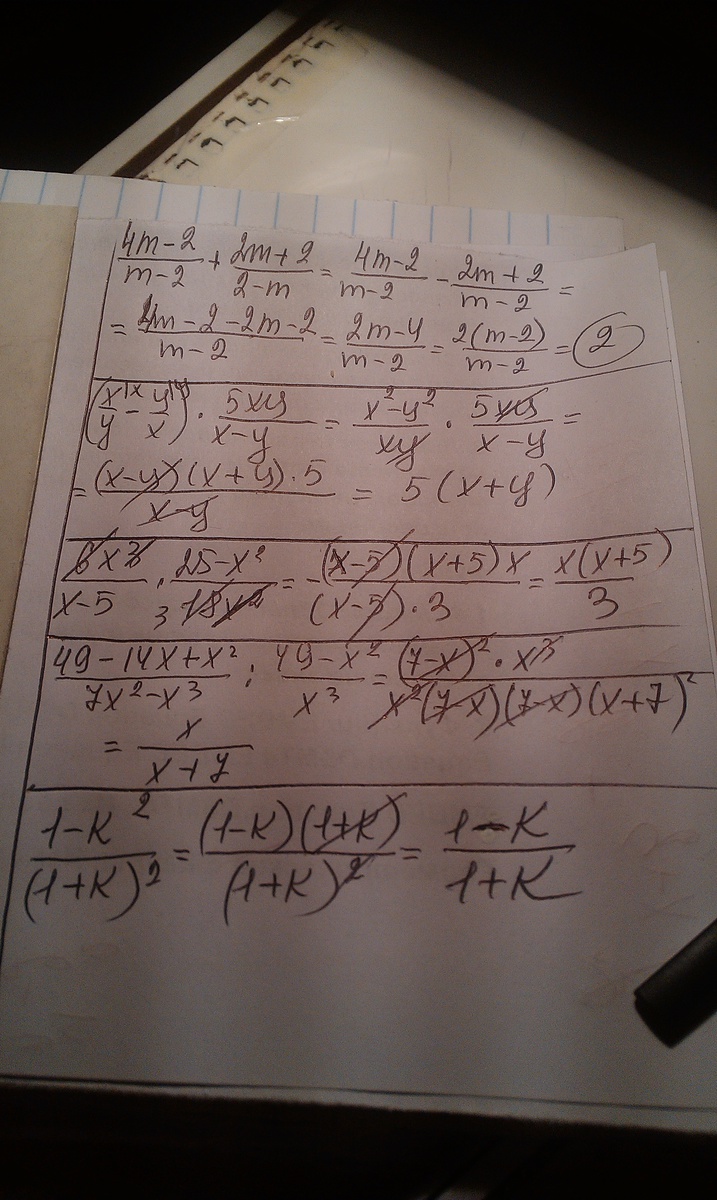 (4m-2)/(m-2) + (2m+2)/(2-m) = (4m-2)/(m-2) - (2m+2)/(m-2) =
= (4m-2-2m-2)/(m-2) = (2m-4)/(m-2) = 2(m-2)/(m-2) = 2
(x/y |x - y/x |y) · 5xy/(x-y) = (x²-y²)/xy · 5xy/(x-y) =
= (x-y)(x+y)·5/(x-y) = 5(x+y)
6x³/(x-5) · (25-x²)/18x² = -(x-5)(x+5)x/((x-5)·3) = x(x+5)/3
(49-14x+x²)/(7x²-x³) : (49-x²)/x³ = (7-x)²·x³/(x²(7-x)(7-x)(x+7)) =
= x/(x+7)
(1-K²)/(1+K)² = (1-K)(1+K)/(1+K)² = (1-K)/(1+K)